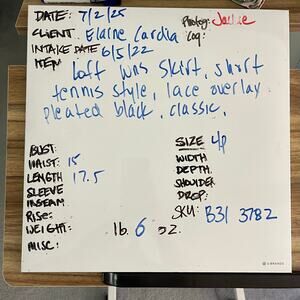 DATE: 7/2/25
Photog: Jackie
CLIENT. Elaine Cardia
Cog:
INTAKE DATE 6/5/22
ITEM
Loft wns skirt, short
tennis style, lace overlay
pleated black, classic,
BUST:
SIZE 4p
WAIST: 15
WIDTH
LENGTH 17.5
DEPTH.
SLEEVE
SHOULDER
INSEAM
DROP:
RISE:
SKU: B31 3782
WEIGHT: lb. 6 oz.
MISC:
U BRANDS